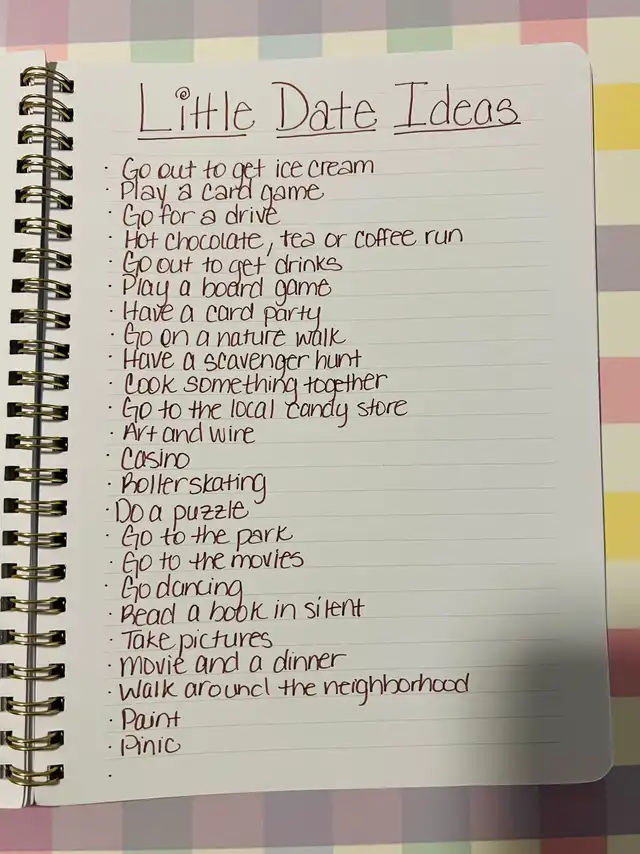 Little Date Ideas
· Go out to get ice cream
· Play a card game
· Go for a drive
· Hot chocolate, tea or coffee run
· Go out to get drinks
· Play a board game
· Have a card party
· Go on a nature walk
· Have a scavenger hunt
· Cook something together
· Go to the local candy store
· Art and wire
· Casino
· Rollerskating
· Do a puzzle
· Go to the park
· Go to the movies
· Go dancing
· Read a book in silent
· Take pictures
· Movie and a dinner
· Walk around the neighborhood
· Paint
· Pinic
·